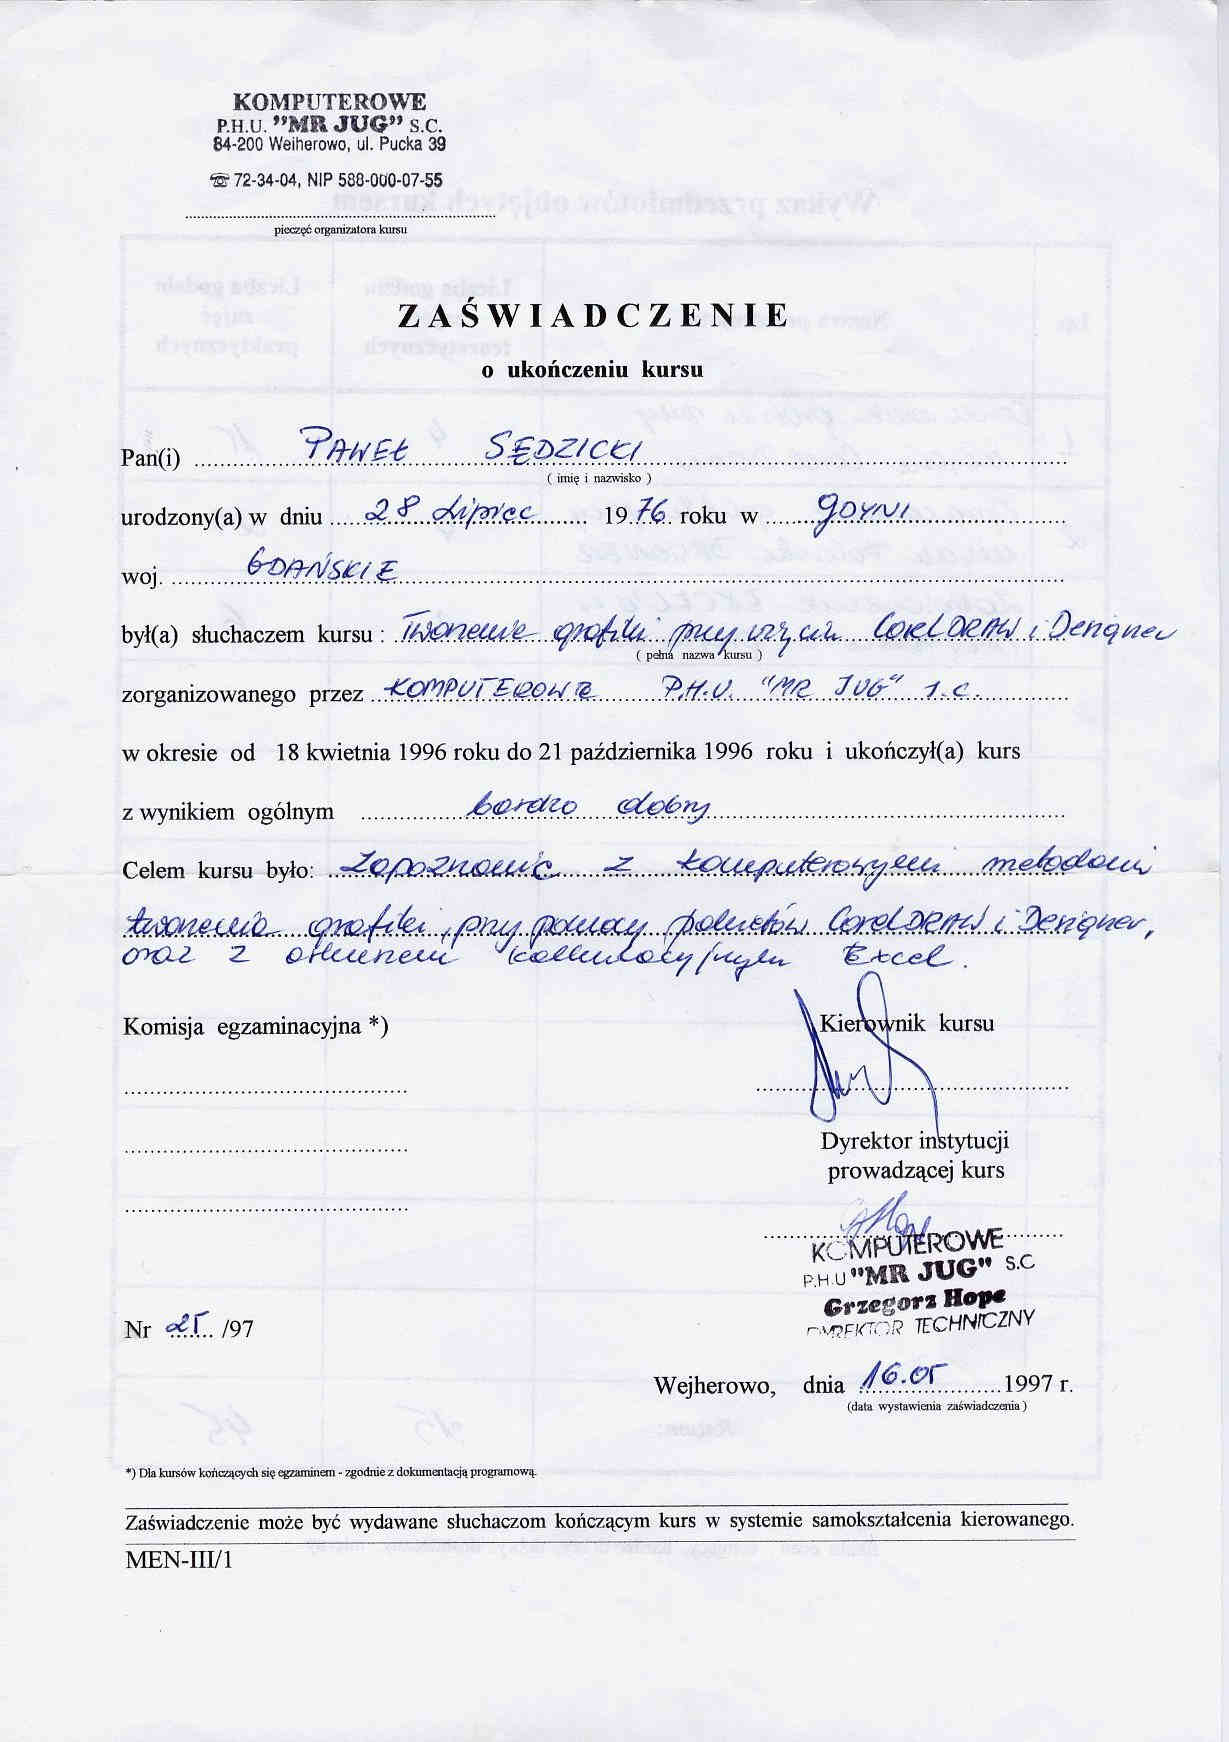 KOMPUTEROWE
P.H.U. "MR JUG" S.C.
84-200 Weiherowo, ul. Pucka 39
☏ 72-34-04, NIP 588-000-07-55
pieczęć organizatora kursu
ZAŚWIADCZENIE
o ukończeniu kursu
Pan(i) PAWEŁ SĘDZICKI
( imię i nazwisko )
urodzony(a) w dniu 28 Lipiec 1976 roku w GDYNI
woj. GDAŃSKIE
był(a) słuchaczem kursu : Tworzenie grafiki przy użyciu CorelDRAW i Designer
( pełna nazwa kursu )
zorganizowanego przez KOMPUTEROWE P.H.U. "MR JUG" s.c.
w okresie od 18 kwietnia 1996 roku do 21 października 1996 roku i ukończył(a) kurs
z wynikiem ogólnym bardzo dobry
Celem kursu było: Zapoznanie z komputerowymi metodami
tworzenia grafiki, przy pomocy pakietów CorelDRAW i Designer,
oraz z arkuszem kalkulacyjnym Excel.
Komisja egzaminacyjna *)
Kierownik kursu
Dyrektor instytucji
prowadzącej kurs
KOMPUTEROWE
P.H.U "MR JUG" S.C
Grzegorz Hope
DYREKTOR TECHNICZNY
Nr 25 /97
Wejherowo, dnia 16.05 1997 r.
(data wystawienia zaświadczenia )
*) Dla kursów kończących się egzaminem - zgodnie z dokumentacją programową.
Zaświadczenie może być wydawane słuchaczom kończącym kurs w systemie samokształcenia kierowanego.
MEN-III/1